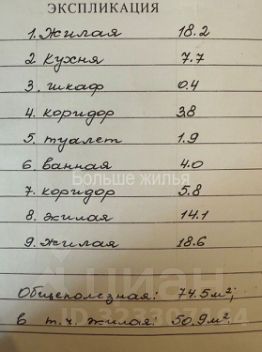 ЭКСПЛИКАЦИЯ
1. Жилая 18.2
2 Кухня 7.7
3. шкаф 0.4
4. коридор 3.8
5. туалет 1.9
6 ванная 4.0
Больше жилья
7. коридор 5.8
8. жилая 14.1
9. жилая 18.6
Общеполезная: 74.5 м²;
в т.ч. жилая: 50.9 м²;
циан